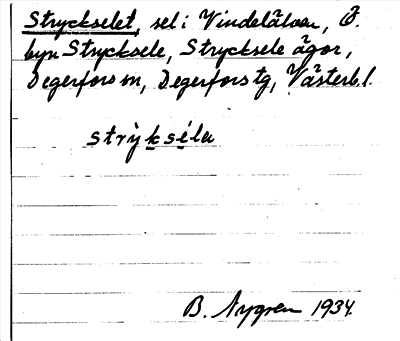 Stryckselet, sel i Vindelälven, Ö.
byn Strycksele, Strycksele ägor,
Degerfors sn, Degerfors tg, Västerb. l.
strỳksèla
B. Nygren 1934.